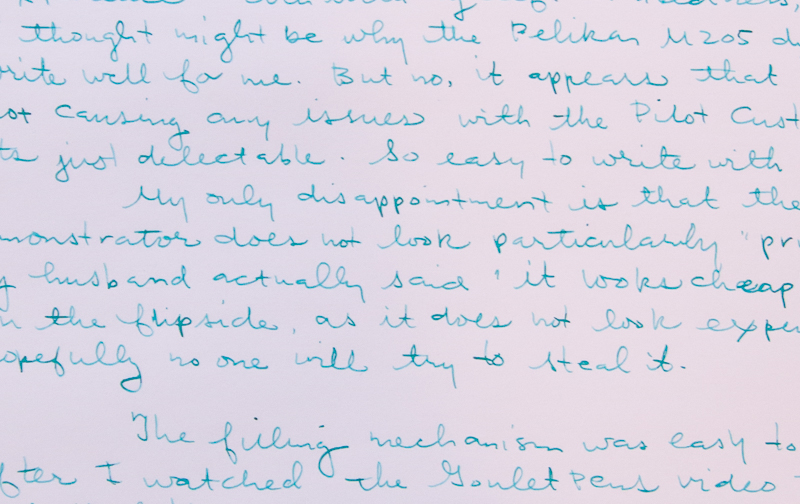 thought might be why the Pelikan M205 d
rite well for me. But no, it appears that
ot causing any issues with the Pilot Cust
ts just delectable. So easy to write with
My only disappointment is that the
monstrator does not look particularly "pr
y husband actually said "it looks cheap
n the flipside, as it does not look expen
opefully no one will try to steal it.
The filling mechanism was easy to
fter I watched the Goulet Pens video